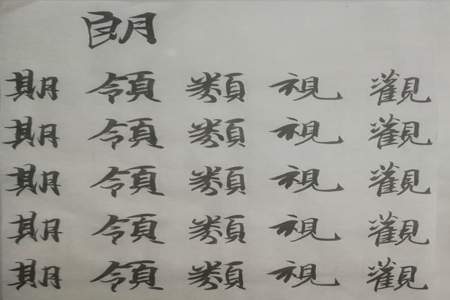 朗
期領類視觀
期領類視觀
期領類視觀
期領類視觀
期領類視觀